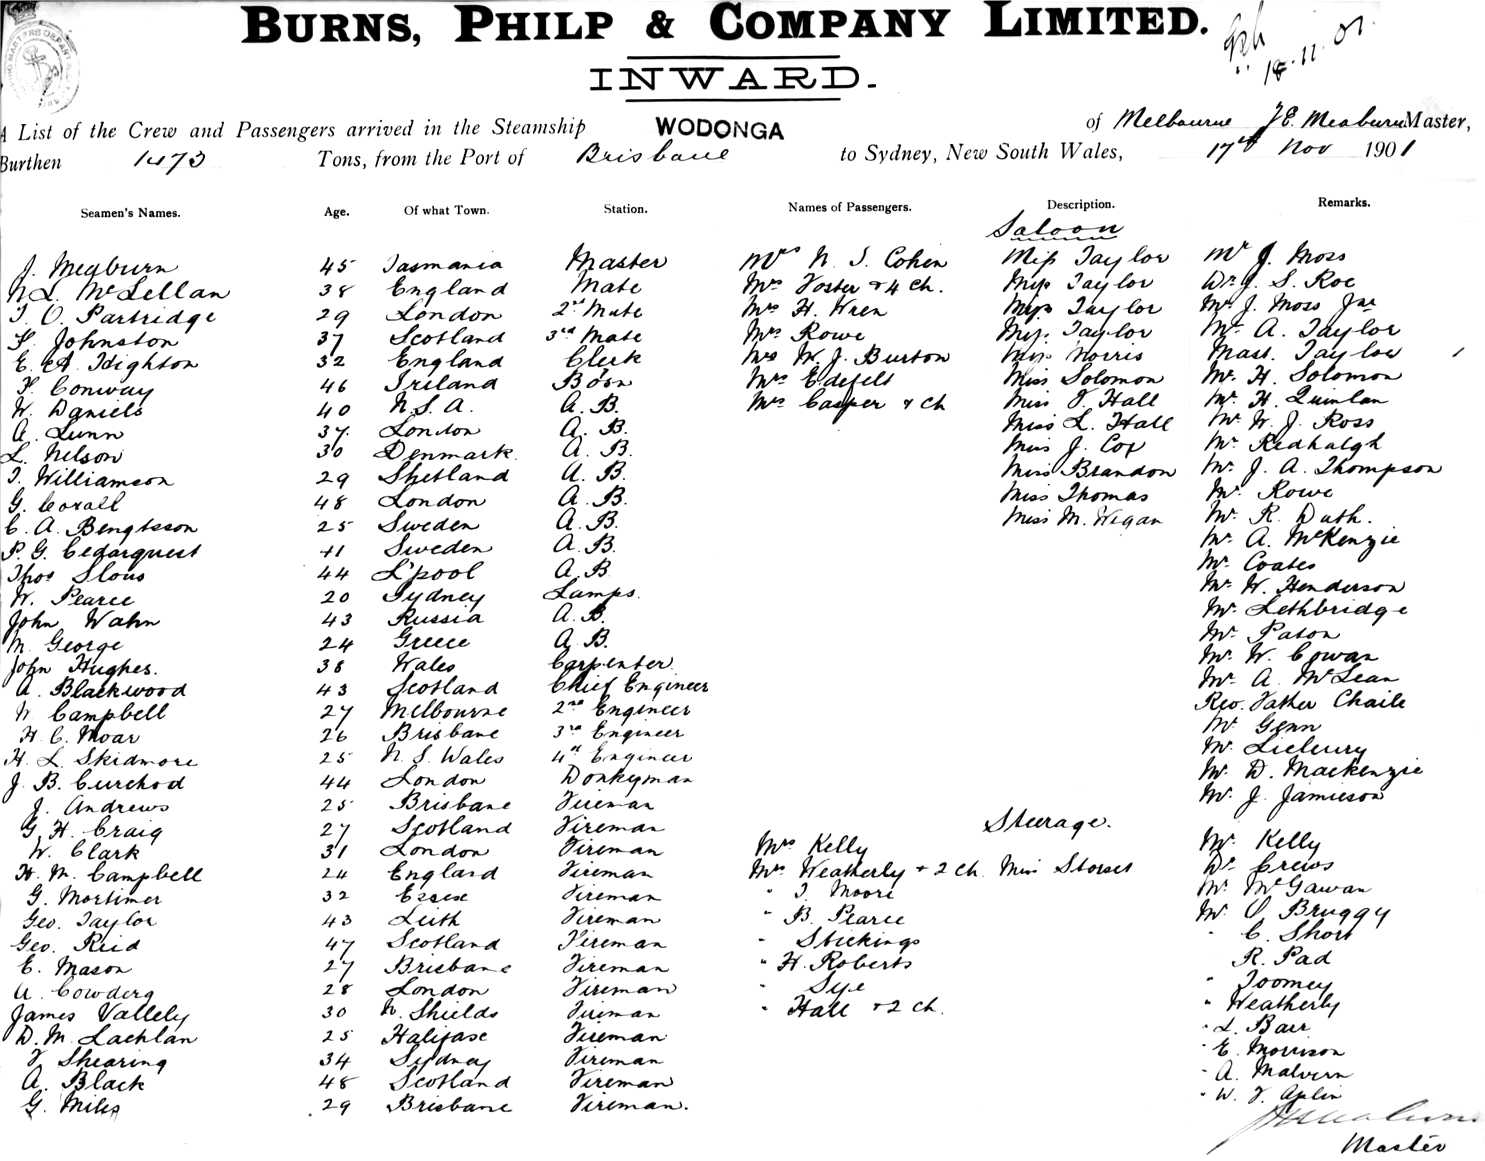 BURNS, PHILP & COMPANY LIMITED.
18.11.01.
INWARD.
A List of the Crew and Passengers arrived in the Steamship WODONGA of Melbourne J E. Meaburn Master,
Burthen 1473 Tons, from the Port of Brisbane to Sydney, New South Wales, 17th Nov 1901
Seamen's Names. Age. Of what Town. Station. Names of Passengers. Description. Remarks.
Saloon
J. Meaburn 45 Tasmania Master Mrs N. S. Cohen Miss Taylor Mr J. Moss
N L. McLellan 38 England Mate Mrs Foster & 4 ch. Miss Taylor Dr J. S. Roe
T. O. Partridge 29 London 2nd Mate Mrs H. Wren Miss Taylor Mr J. Moss Jnr
F. Johnston 37 Scotland 3rd Mate Mrs Rowe Miss Taylor Mr A. Taylor
E. A. Highton 32 England Clerk Mrs W. J. Burton Miss Norris Mast. Taylor
F. Conway 46 Ireland Bosn Mrs Edefelt Miss Solomon Mr H. Solomon
W. Daniels 40 N.S.A. A.B. Mrs Casper & ch Miss F. Hall Mr H. Quinlan
A. Lunn 37. London A.B. Miss L. Hall Mr W. J. Ross
L. Nelson 30 Denmark. A.B. Miss J. Cox Mr Redhalgh
T. Williamson 29 Shetland A.B. Miss Brandon Mr J. A. Thompson
G. Coxall 48 London A.B. Miss Thomas Mr. Rowe
C. A. Bengtsson 25 Sweden A.B. Miss M. Wigan Mr. R. Dath.
P. G. Cedarquest 41 Sweden A.B. Mr A. McKenzie
Thos Slous 44 L'pool A.B Mr Coates
W. Pearce 20 Sydney Lamps. Mr W. Henderson
John Wahn 43 Russia A.B. Mr Lethbridge
M. George 24 Greece A.B. Mr Paton
John Hughes. 38 Wales Carpenter Mr W. Cowan
A. Blackwood 43 Scotland Chief Engineer Mr A. McLean
W Campbell 27 Melbourne 2nd Engineer Rev. Father Chaile
H. C. Moar 26 Brisbane 3rd Engineer Mr Genn
H. L. Skidmore 25 N. S. Wales 4th Engineer Mr
J. B. Curchod 44 London Donkyman Mr D. Mackenzie
J. Andrews 25 Brisbane Fireman Mr J. Jamieson
G. H. Craig 27 Scotland Fireman Steerage.
W. Clark 31 London Fireman Mrs Kelly Mr Kelly
H. M. Campbell 24 England Fireman Mrs Weatherly + 2 ch. Miss Dr Crews
G. Mortimer 32 Essex Fireman " T. Moore Mr McGawan
Geo. Taylor 43 Leith Fireman " B. Pearce Mr O Bruggy
Geo. Reid 47 Scotland Fireman " Stickings " C. Short
E. Mason 27 Brisbane Fireman " H. Roberts R. Pad
A. Cowderg 28 London Fireman " Sye " Toomey
James Vallely 30 N. Shields Fireman " Hall + 2 ch. " Weatherly
D. M. Lachlan 25 Halifase Fireman " L. Bair
F Shearing 34 Sydney Fireman " E. Morrison
A. Black 48 Scotland Fireman " A. Malvern
G. Miles 29 Brisbane Fireman. " W. F. Aplin
Master